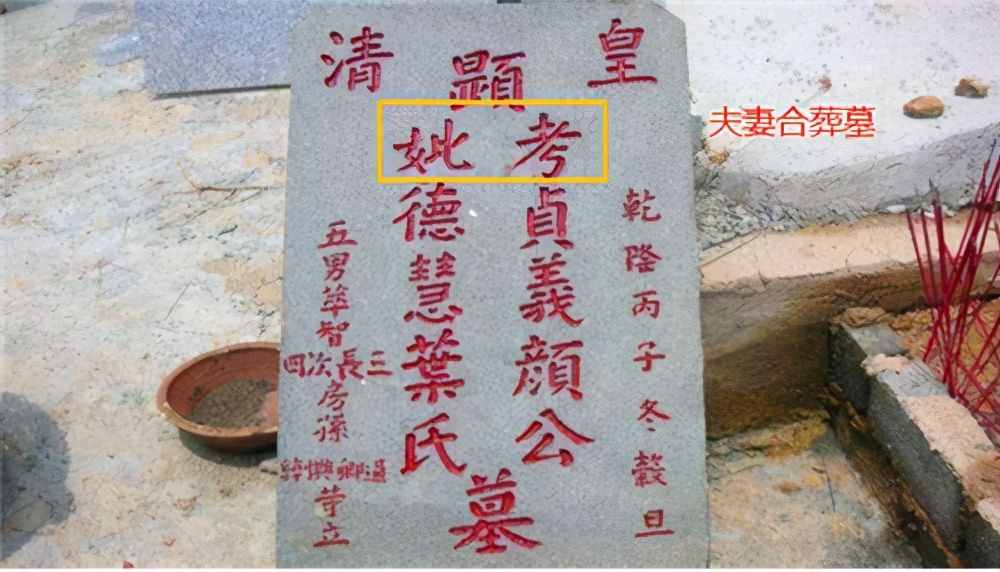 皇清
乾隆丙子冬穀旦
顯
考貞義顏公
妣德慧葉氏
墓
五男 智
三長次四
房孫
等立
夫妻合葬墓